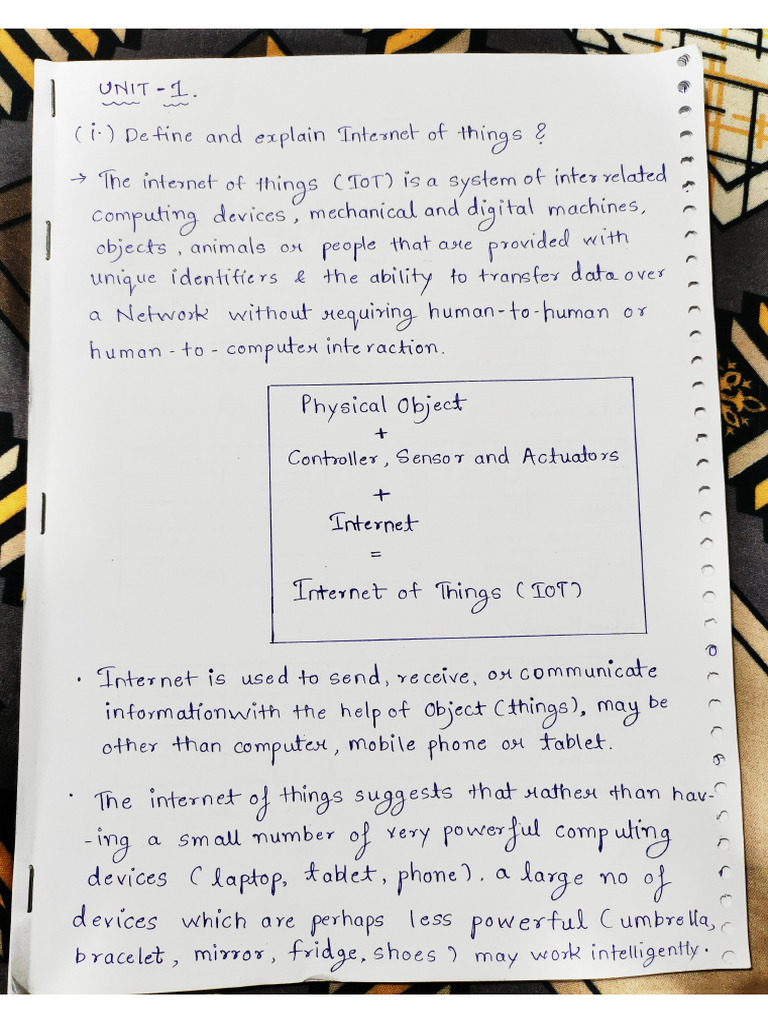 UNIT - 1.
(i.) Define and explain Internet of things ?
→ The internet of things (IoT) is a system of interrelated
computing devices, mechanical and digital machines,
objects, animals or people that are provided with
unique identifiers & the ability to transfer data over
a Network without requiring human-to-human or
human-to-computer interaction.
Physical Object
+
Controller, Sensor and Actuators
+
Internet
=
Internet of Things (IOT)
· Internet is used to send, receive, or communicate
information with the help of Object (things), may be
other than computer, mobile phone or tablet.
· The internet of things suggests that rather than hav-
-ing a small number of very powerful computing
devices (laptop, tablet, phone). a large no of
devices which are perhaps less powerful (umbrella,
bracelet, mirror, fridge, shoes) may work intelligently.